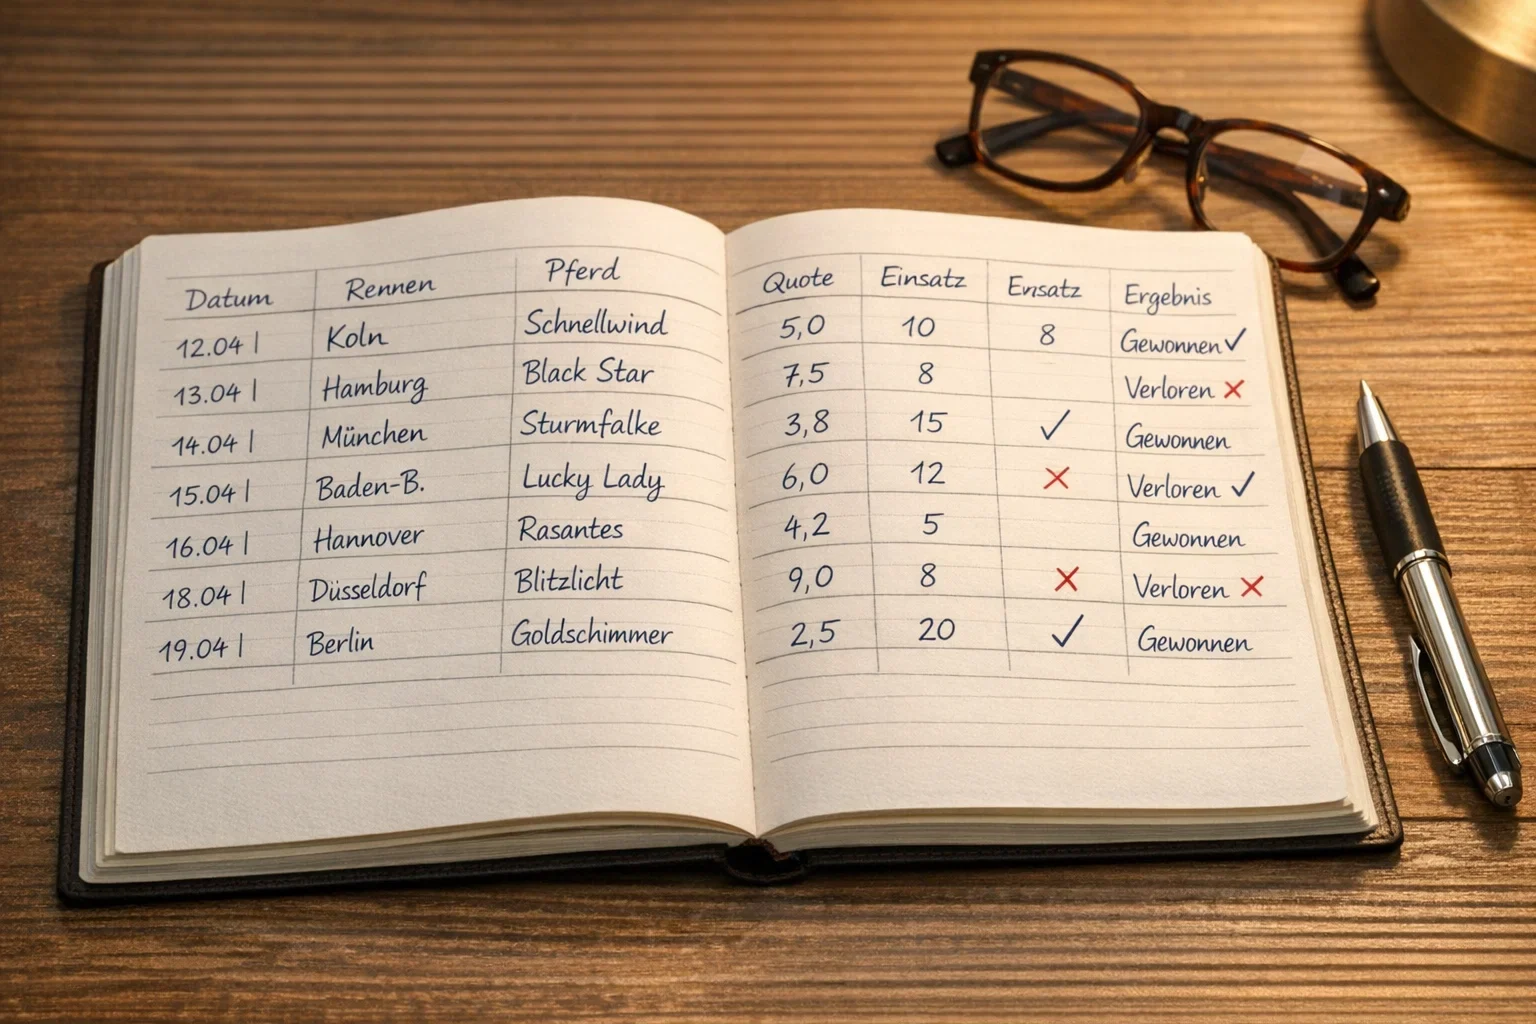 Datum Rennen Pferd Quote Einsatz Ensatz Ergebnis
12.04 | Koln Schnellwind 5,0 10 8 Gewonnen ✓
13.04 | Hamburg Black Star 7,5 8 Verloren ✗
14.04 | München Sturmfalke 3,8 15 ✓ Gewonnen
15.04 | Baden-B. Lucky Lady 6,0 12 ✗ Verloren ✓
16.04 | Hannover Rasantes 4,2 5 Gewonnen
18.04 | Düsseldorf Blitzlicht 9,0 8 ✗ Verloren ✗
19.04 | Berlin Goldschimmer 2,5 20 ✓ Gewonnen